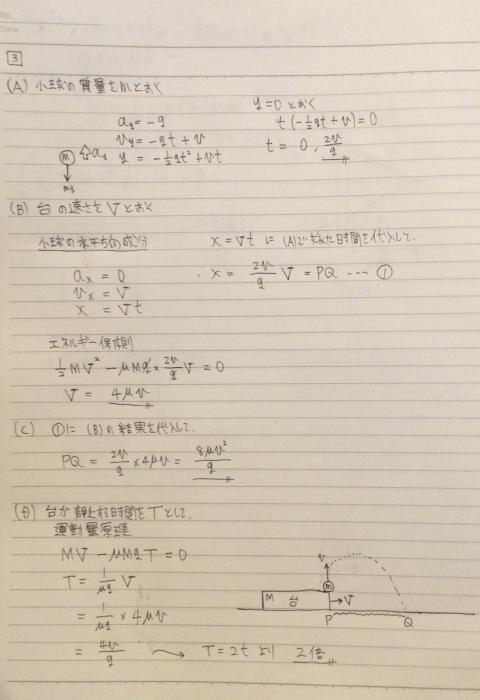 No.
Date
3
(A) 小球の質量をmとおく
a_y = -g
v_y = -gt + v
y = -1/2gt² + vt
m
a_y
mg
y=0 とおく
t(-1/2gt + v) = 0
t = 0, 2v/g
(B) 台の速さを V とおく
小球の水平方向成分
a_x = 0
v_x = V
x = Vt
x = Vt に (A)で求めた時間を代入して.
x = 2v/g V = PQ ---- ①
エネルギー保存則
1/2MV² - μMg × 2v/g V = 0
V = 4μv
(C) ①に (B)の結果を代入して.
PQ = 2v/g × 4μv = 8μv²/g
(D) 台が静止する時間を T として.
運動量原理
MV - μMgT = 0
T = 1/μg V
= 1/μg × 4μv
= 4v/g → T = 2t より 2倍
v
m
M 台
V
P
Q